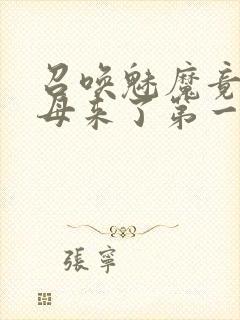 召唤魅魔竟
母来了第一
張寧